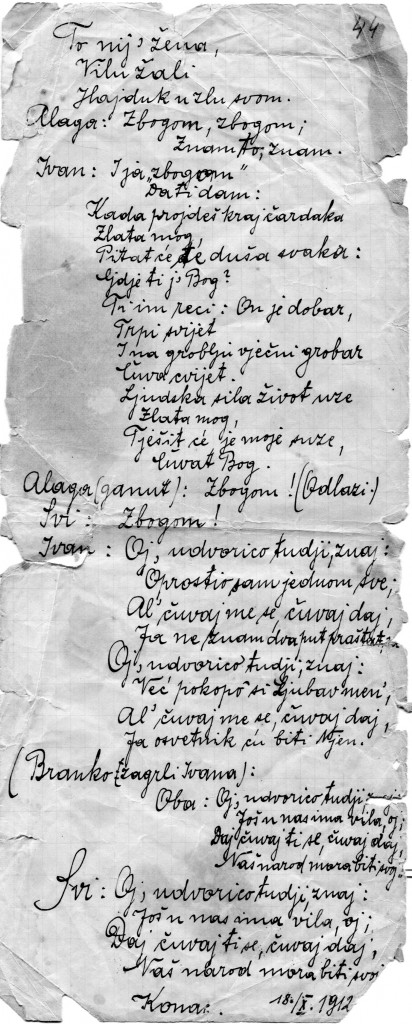 44
To nij' žena,
Vilu žali
Hajduk u zlu svom.
Alaga: Zbogom, zbogom;
Znam to, znam.
Ivan: I ja "zbogom"
Dati dam:
Kada projdeš kraj čardaka
Zlata mog,
Pitat će te duša svaka:
Gdje ti j' Bog?
Ti im reci: On je dobar,
Trpi svijet
I na groblju vječni grobar
Čuva cvijet.
Ljudska sila život uze
Zlata mog,
Tješit će je moje suze,
Čuvat Bog.
Alaga (ganut): Zbogom! (Odlazi.)
Svi: Zbogom!
Ivan: Oj, udvorico tudji, znaj:
Oprostio sam jednom sve;
Al' čuvaj me se, čuvaj daj,
Ja ne znam dva put praštat
Oj, udvorico tudji, znaj:
Već pokopo si ljubav men',
Al' čuvaj me se, čuvaj daj,
Ja osvetnik ću biti njen.
(Branko (zagrli Ivana):
Oba: Oj, udvorico tudji,
Još u nas ima vila, oj;
Daj čuvaj ti se, čuvaj daj,
Naš narod mora biti svoj
Svi: Oj, udvorico tudji, znaj:
Još u nas ima vila, oj;
Daj čuvaj ti se, čuvaj daj,
Naš narod mora biti svoj
Konac. 18./X. 1912